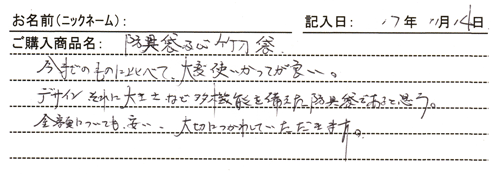 お名前(ニックネーム): 記入日: '17年 11月14日
ご購入商品名: 防具袋及び竹刀袋
今までのものに比べて、大変使いかってが良い。
デザインそれに大きさなど多機能を備えた防具袋であると思う。
金額についても、安い、大切につかわしていただきます。